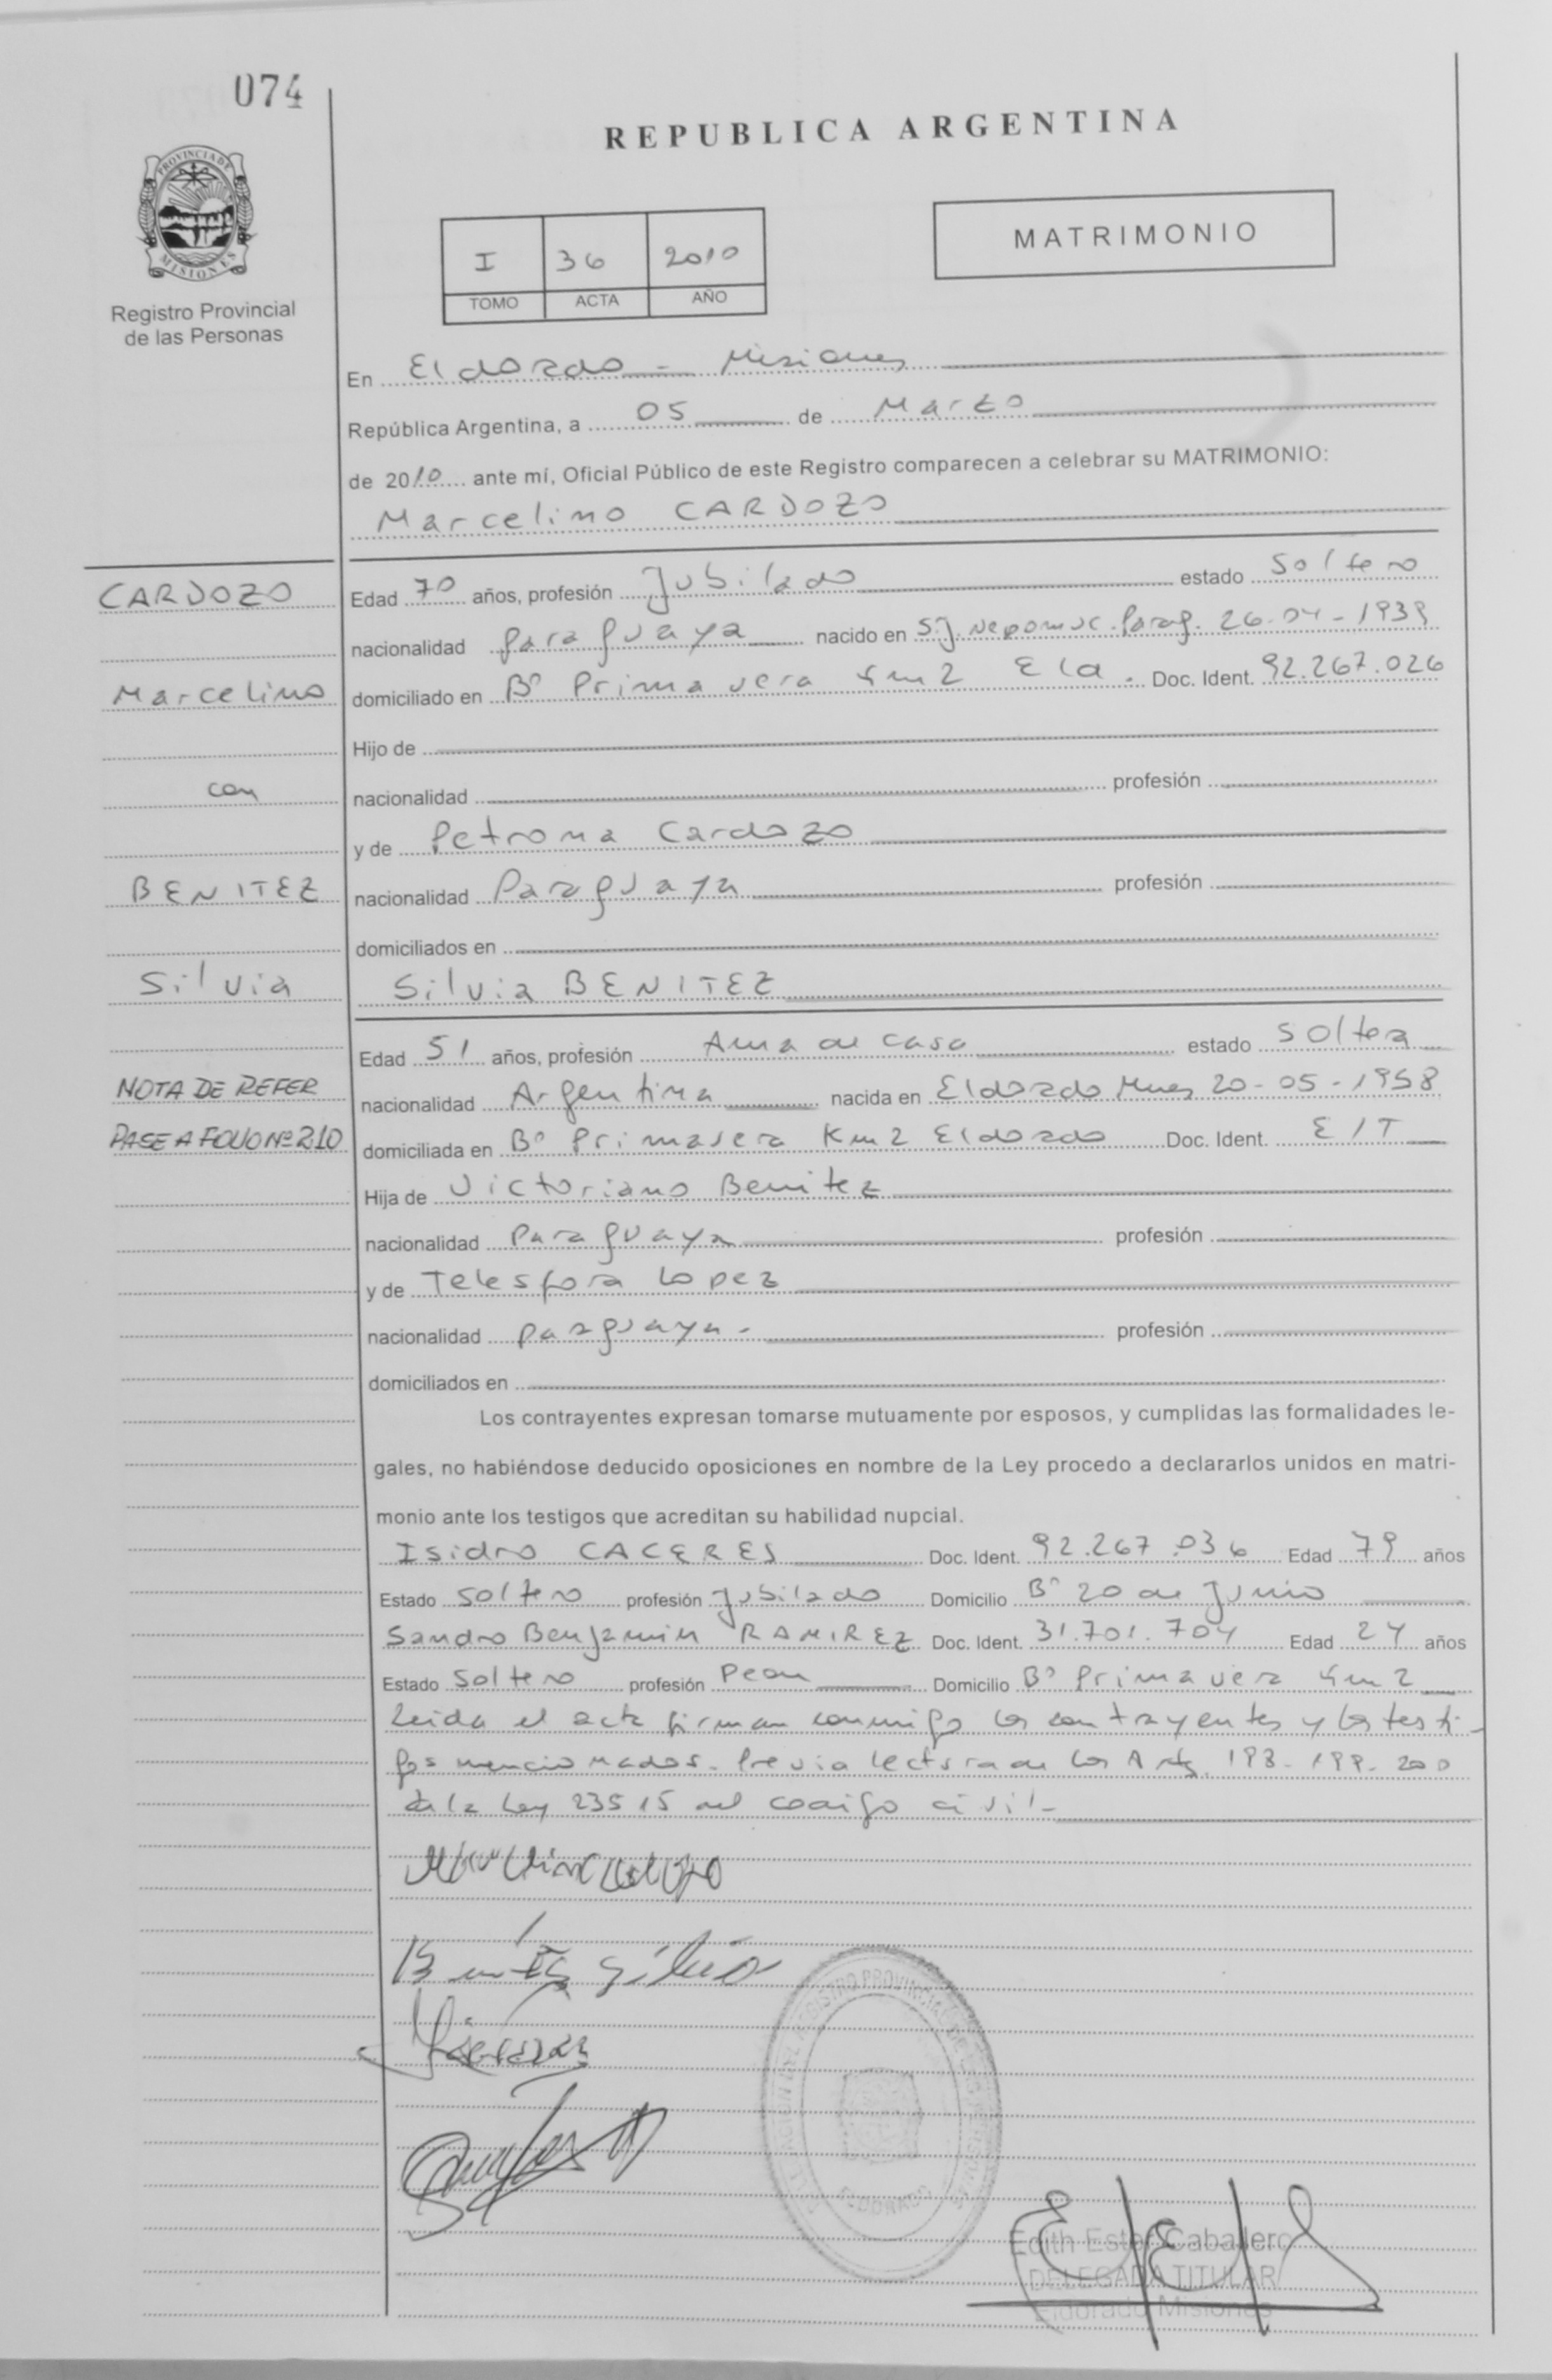 074
REPUBLICA ARGENTINA
PROVINCIA DE
MISIONES
Registro Provincial
de las Personas
I 36 2010
TOMO ACTA AÑO
MATRIMONIO
En Eldorado - Misiones
República Argentina, a 05 de Marzo
de 2010 ante mí, Oficial Público de este Registro comparecen a celebrar su MATRIMONIO:
Marcelino CARDOZO
CARDOZO
Edad 70 años, profesión Jubilado estado Soltero
nacionalidad Paraguaya nacido en S.J. Nepomuc. Parag. 26-04-1939
Marcelino
domiciliado en Bº Primavera Km 2 Eld. Doc. Ident. 92.267.026
Hijo de
con
nacionalidad profesión
y de Petrona Cardozo
BENITEZ
nacionalidad Paraguaya profesión
domiciliados en
Silvia
Silvia BENITEZ
Edad 51 años, profesión Ama de casa estado Soltera
NOTA DE REFER
nacionalidad Argentina nacida en Eldorado Mnes 20-05-1958
PASE A FOLIO Nº 210
domiciliada en Bº Primavera Km 2 Eldorado Doc. Ident. E/T
Hija de Victoriano Benitez
nacionalidad Paraguaya profesión
y de Telesfora Lopez
nacionalidad Paraguaya - profesión
domiciliados en
Los contrayentes expresan tomarse mutuamente por esposos, y cumplidas las formalidades le-
gales, no habiéndose deducido oposiciones en nombre de la Ley procedo a declararlos unidos en matri-
monio ante los testigos que acreditan su habilidad nupcial.
Isidro CACERES Doc. Ident. 92.267.036 Edad 79 años
Estado Soltero profesión Jubilado Domicilio Bº 20 de Junio
Sandro Benjamin RAMIREZ Doc. Ident. 31.701.704 Edad 24 años
Estado Soltero profesión Peon Domicilio Bº Primavera Km 2
Leida el acta firman conmigo los contrayentes y los testi-
gos mencionados. Previa lectura de los Arts. 198-199-200
de la Ley 23515 del codigo civil-
Marcelino Cardozo
Benitez Silvia
Edith Ester Caballero
DELEGADA TITULAR
Eldorado Misiones